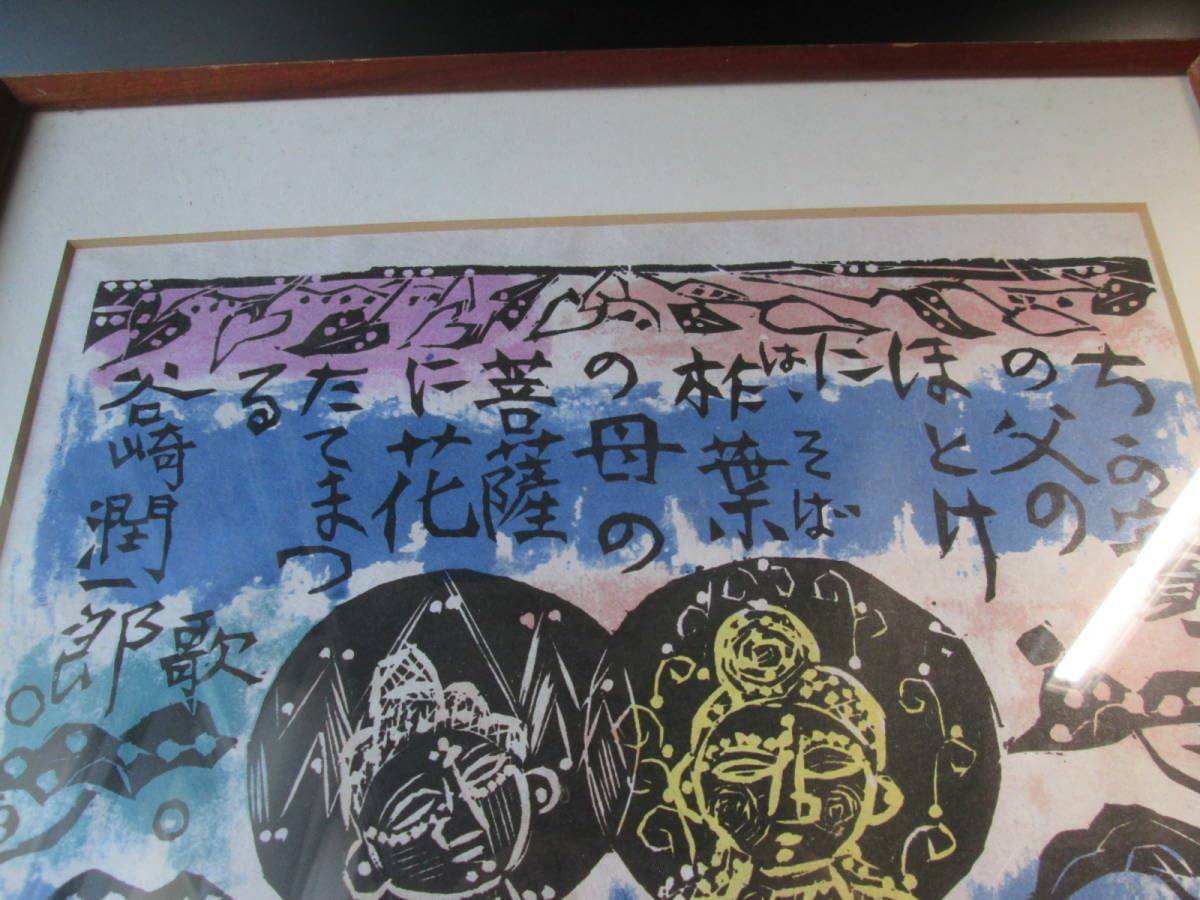 ちゝの実
の父の
ほとけ
に
はゝそば
柞葉
の母の
菩薩
に花
たてまつ
る
谷崎潤一郎
歌